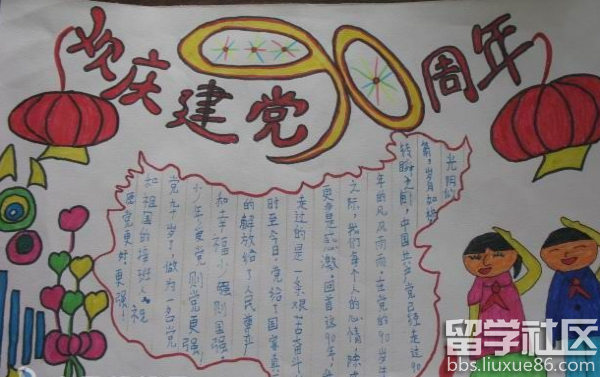 欢庆建党90周年
光阴似
箭,岁月如梭
转瞬之间,中国共产党已经走过90
年的风风雨雨,在党的90岁
之际,我们每个人的心情,除
更多是感激。回首这90年,
走过的是一条艰苦奋斗
时至今日,党给了国家真
的解放给了人民尊严
和幸福少年强则国强,
少年爱党则党更强!
党九十岁了,做为一名党
和祖国的接班人,祝
愿党更好更强!
留学社区
bbs.liuxue86.com